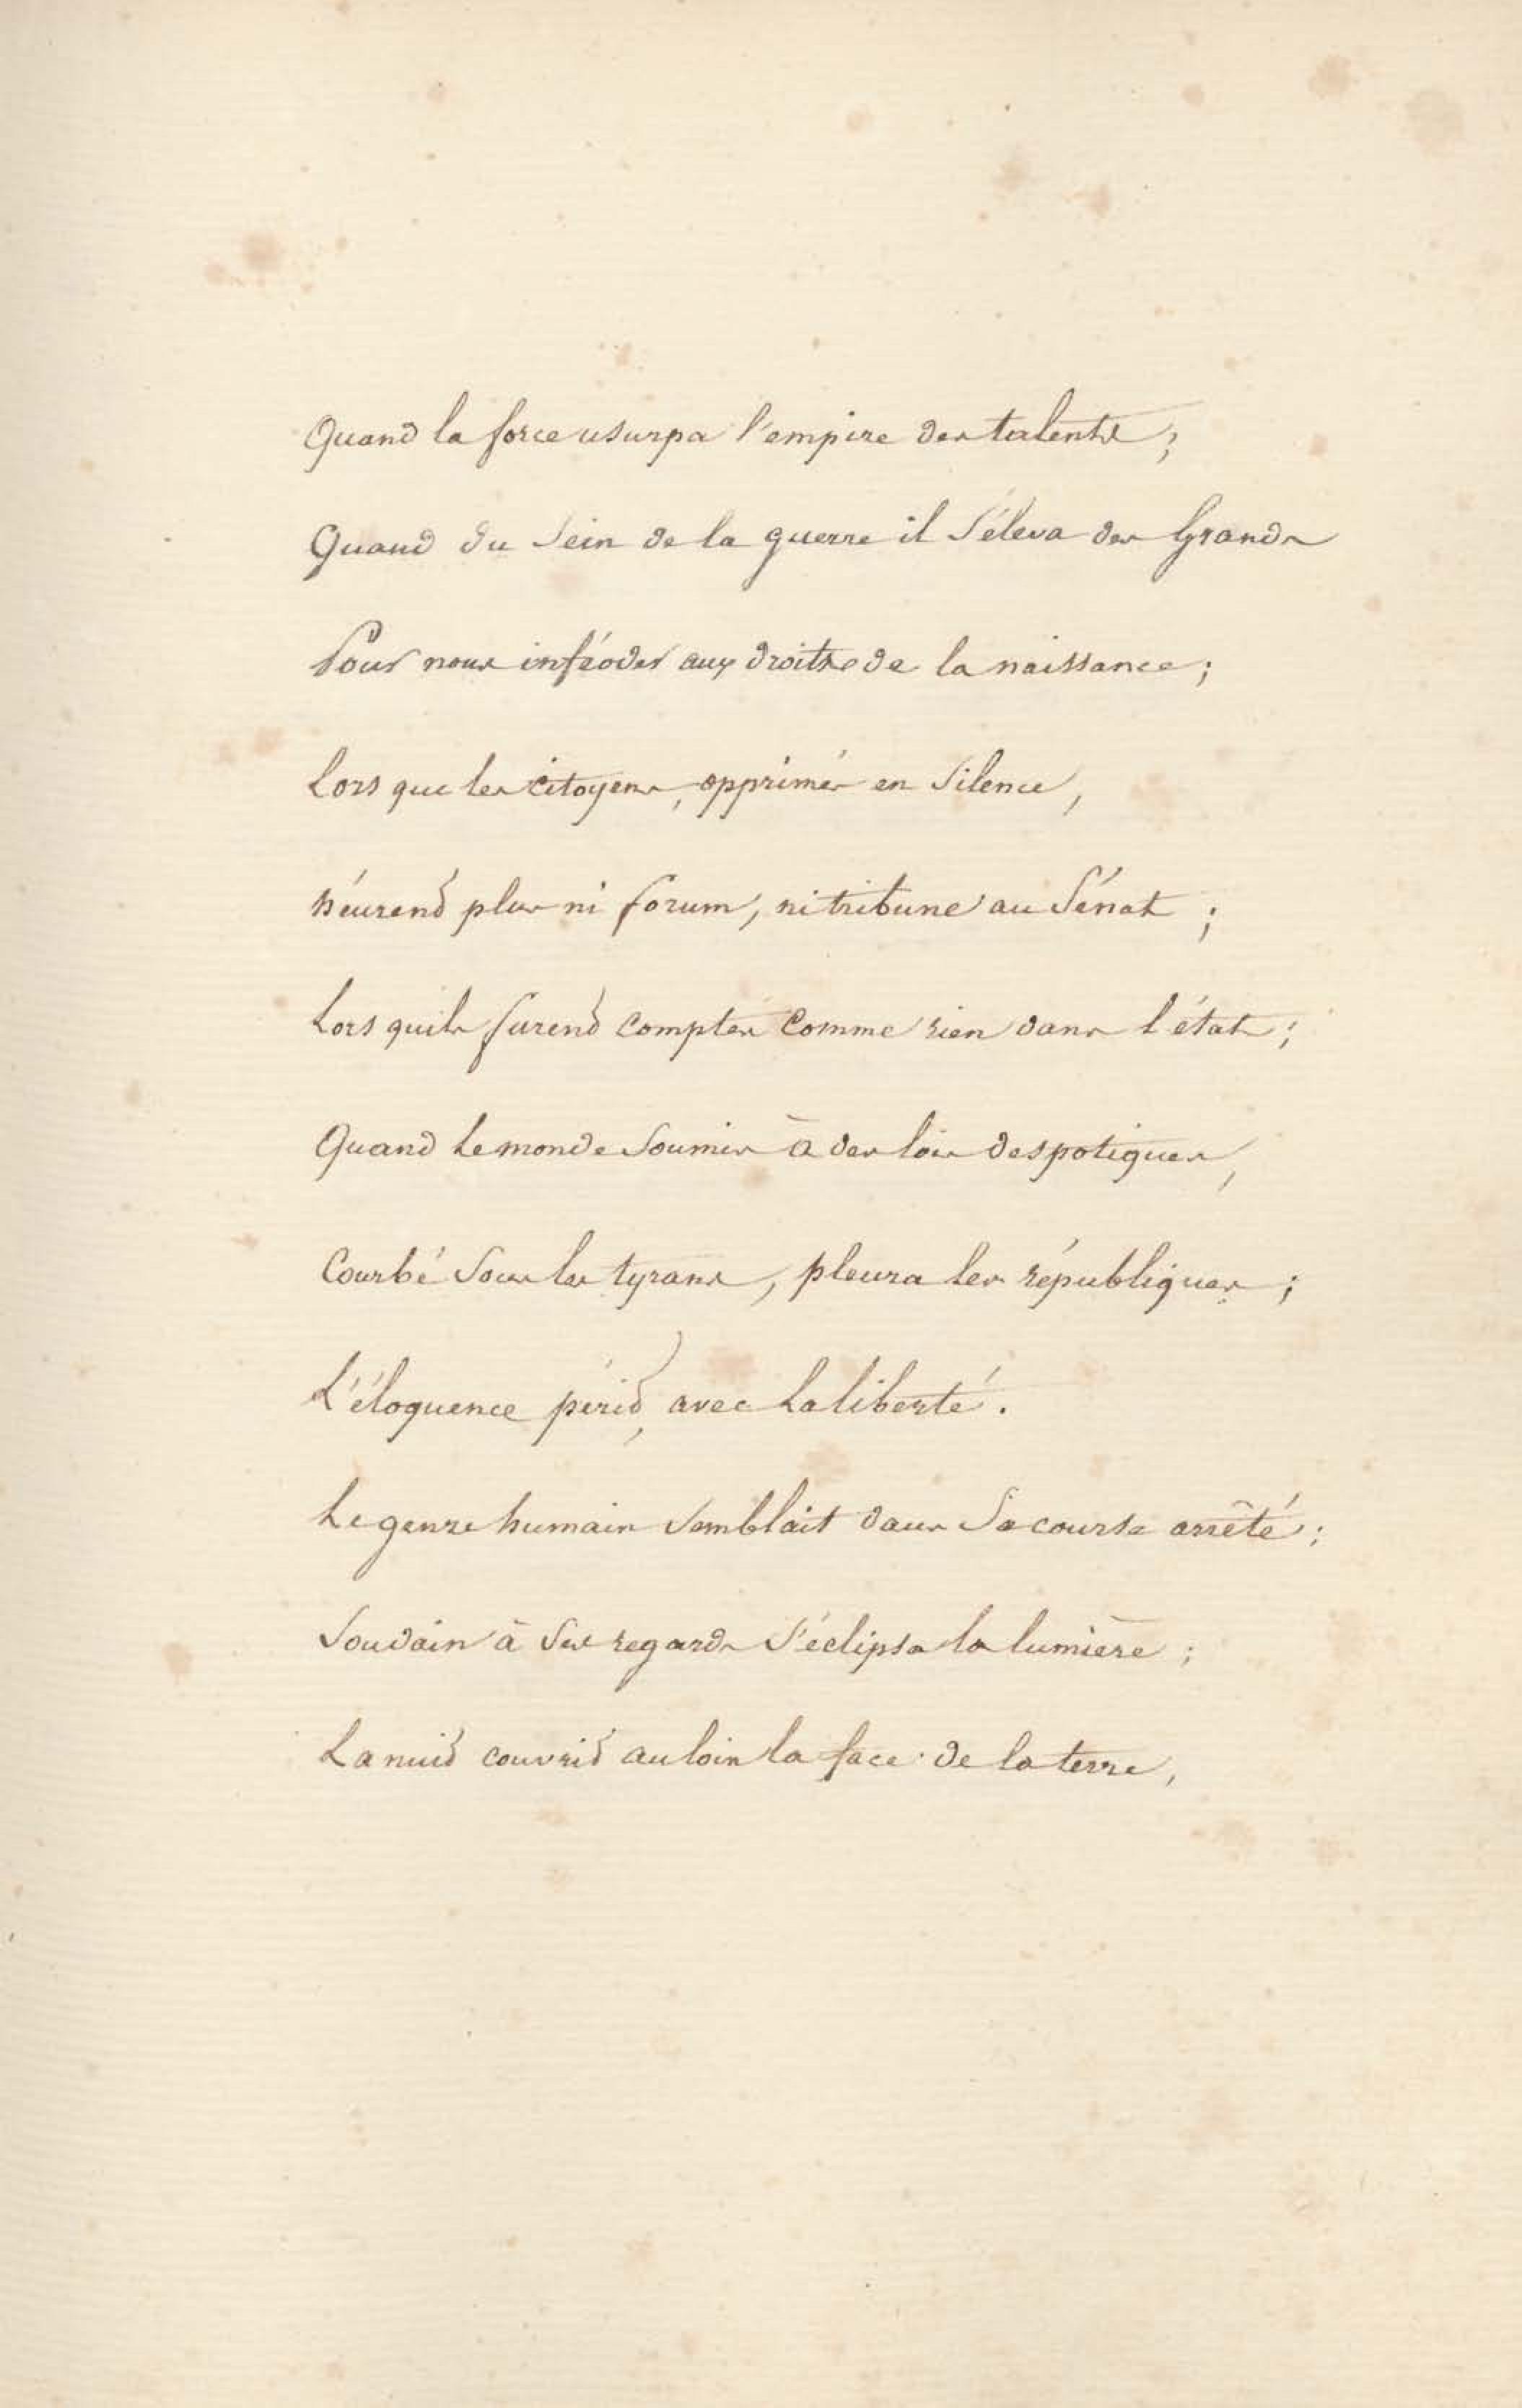 Quand la force usurpa l'empire des talents;
Quand du sein de la guerre il s'éleva des Grands
Pour nous inféoder aux droits de la naissance;
Lors que les citoyens, opprimés en silence,
n'eurent plus ni forum, ni tribune au Sénat;
Lors quils furent comptés comme rien dans l'état;
Quand le monde soumis à des lois despotiques,
Courbé sous les tyrans, pleura les républiques;
L'éloquence périt, avec la liberté.
Le genre humain semblait dans sa course arrêté;
Soudain à ses regards s'éclipsa la lumière;
La nuit couvrit au loin la face de la terre,